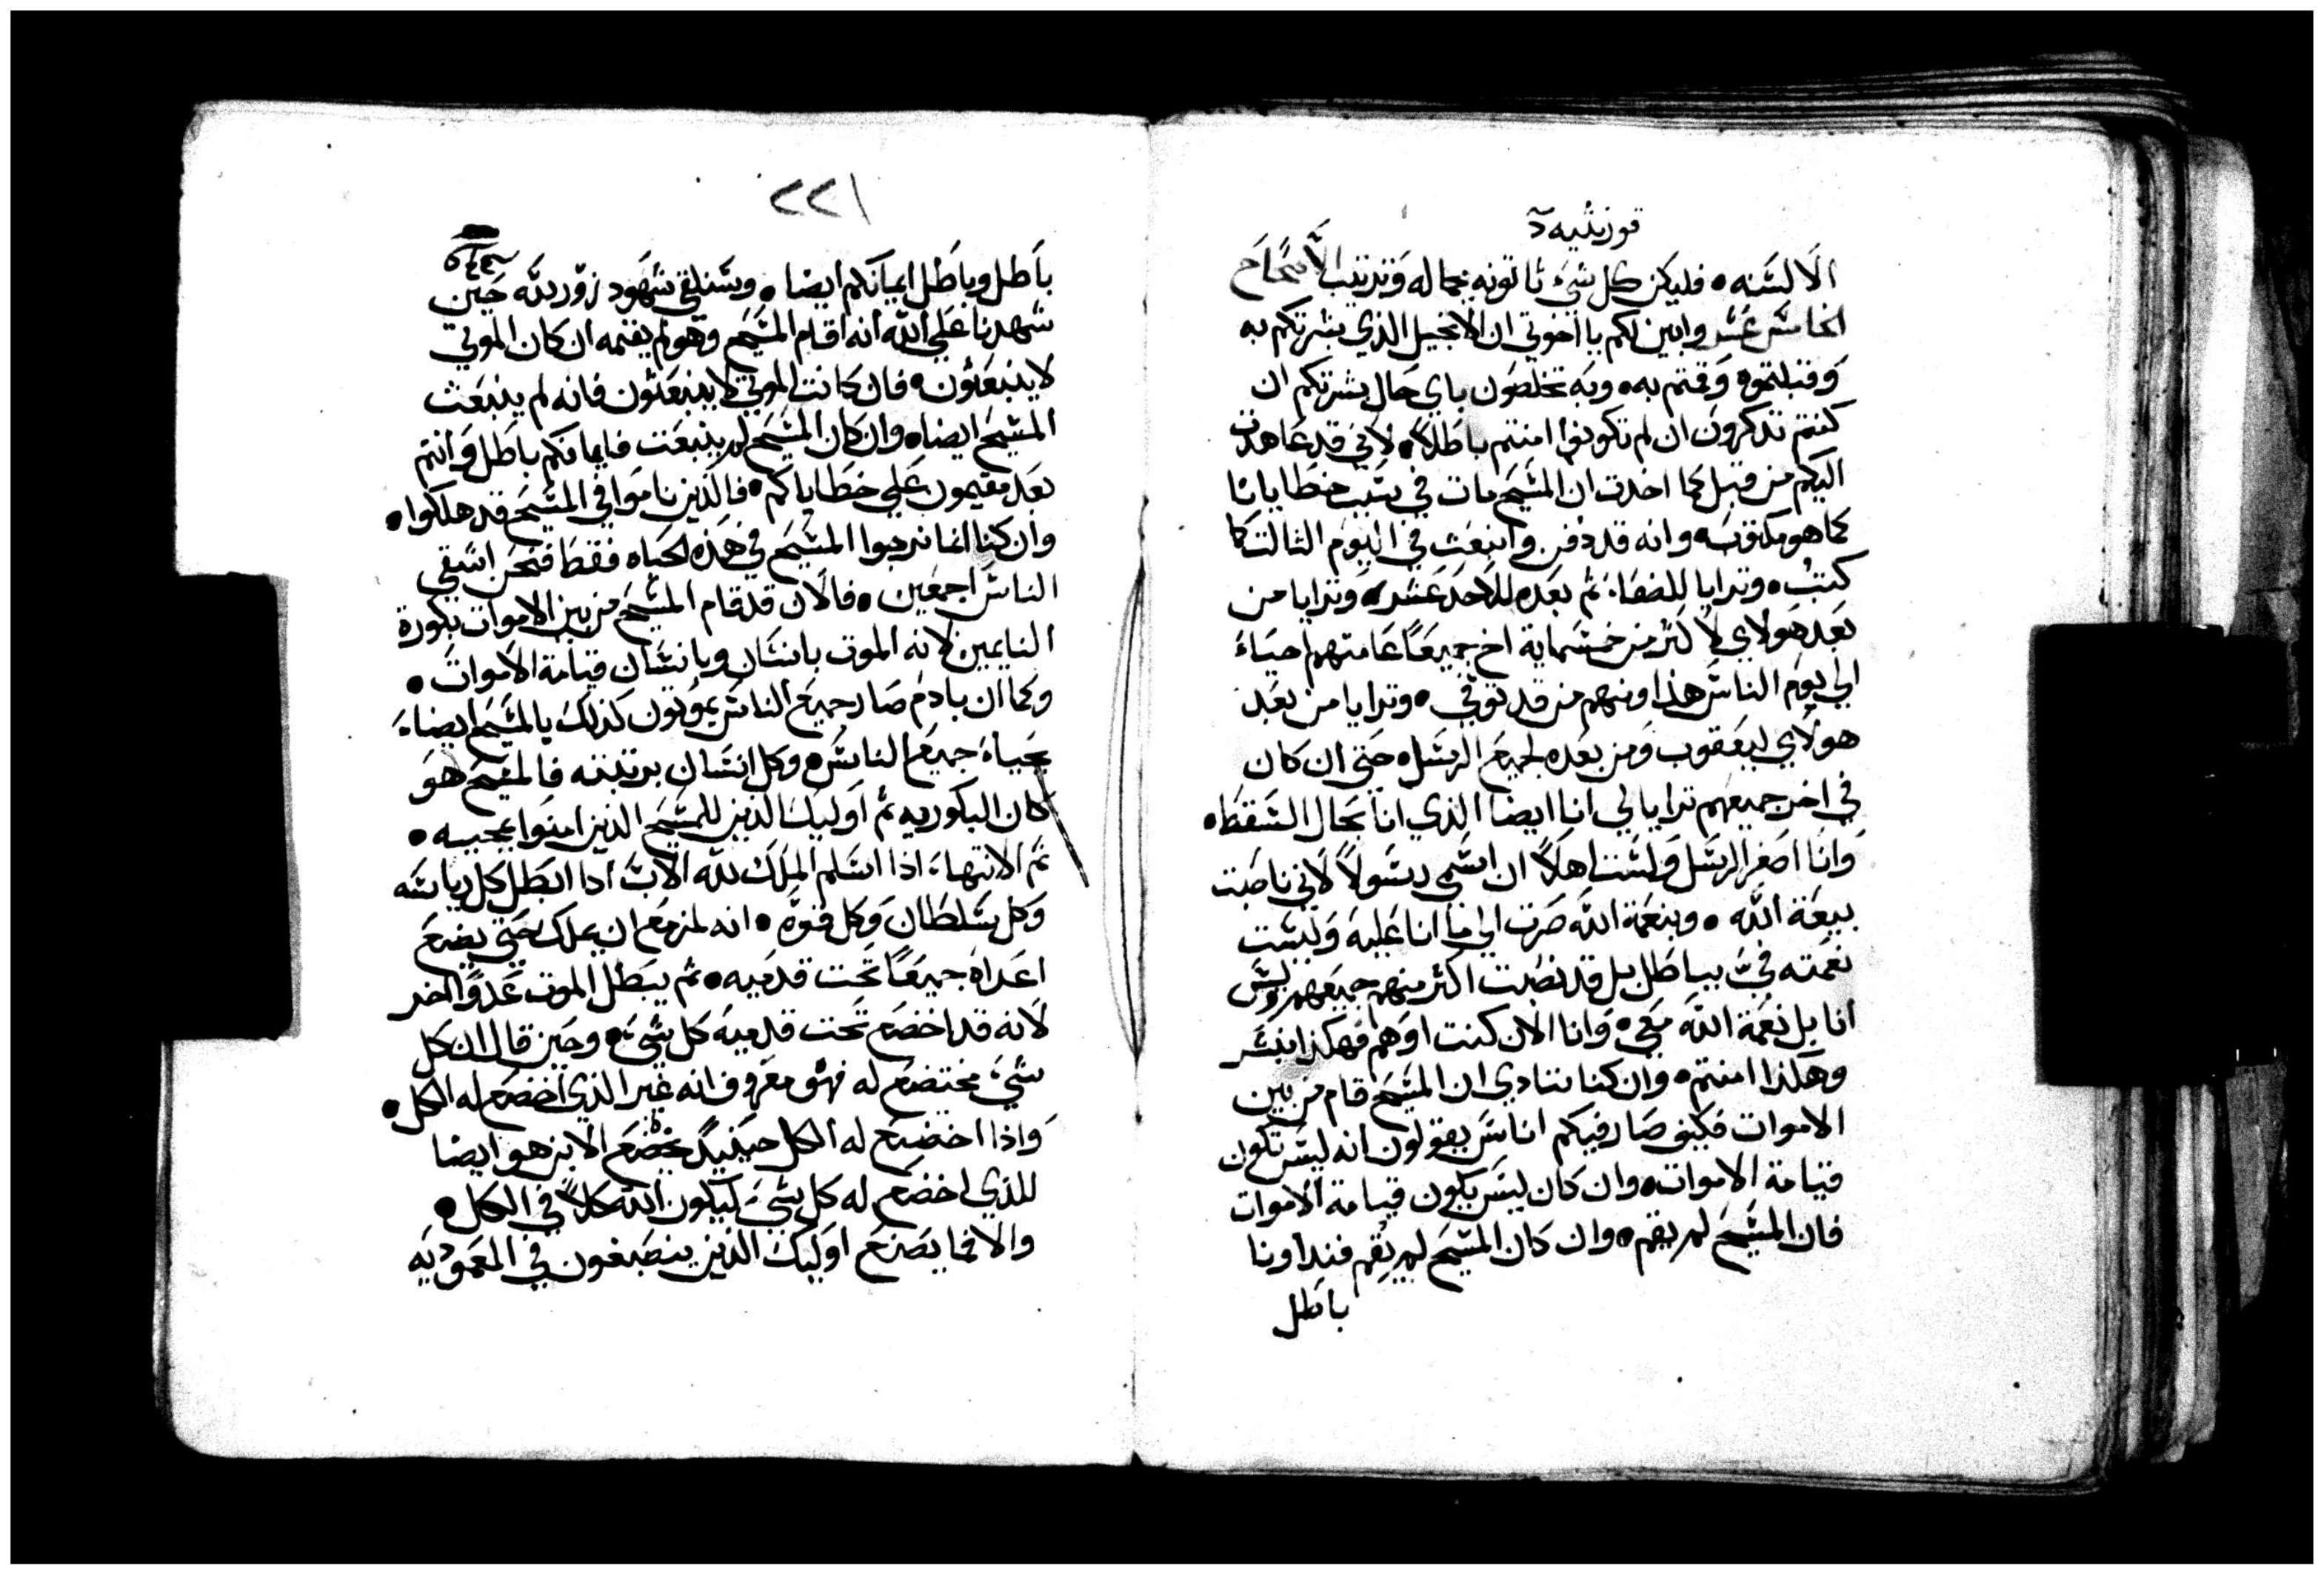 قورنثيه
الالسنه • فليكن كل شيء تاتونه بجماله وترتيب الاصحاح
الخامس عشر وابين لكم يا اخوتي ان الانجيل الذي بشرتكم به
وقبلتموه وقمتم به • وبه تخلصون باي حال بشرتكم ان
كنتم تذكرون ان لم تكونوا امنتم باطلاً • لاني قد عاهدت
اليكم من قبل كما اخدت ان المسيح مات في سبب خطايانا
كما هو مكتوب • وانه قد دفن وانبعث في اليوم الثالث كما
كتب • وترايا للصفا • ثم بعده للاحد عشر • وترايا من
بعد هولاي لاكثر من خمسماية اخ جميعاً عامتهم احياء
الي يوم الناس هذا ومنهم من قد توفي • وترايا من بعد
هولاي ليعقوب ومن بعده لجميع الرسل • حتى ان كان
في اخر جميعهم ترايا لي انا ايضا الذي انا بحال السقط •
وانا اصغر الرسل ولست اهلاً ان اسمي رسولاً لاني ناصبت
بيعة الله • وبنعمة الله صرت الي ما انا عليه وليست
نعمته فيّ بباطل بل قد نصبت اكثر منهم جميعهم وليس
انا بل نعمة الله معي • وانا الان كنت او هم فهكذا نبشر
وهكذا امنتم • وان كنا ننادي ان المسيح قام من بين
الاموات فكيف صار فيكم اناس يقولون انه ليس تكون
قيامة الاموات • وان كان ليس يكون قيامة الاموات
فان المسيح لم يقم • وان كان المسيح لم يقم فنداونا
باطل
٢٢١
باطل وباطل ايمانكم ايضا • وسنلقي شهود زور لله حين
شهدنا علي الله انه اقام المسيح وهو لم يقمه ان كان الموتي
لا ينبعثون • فان كانت الموتي لا ينبعثون فانه لم ينبعث
المسيح ايضا • وان كان المسيح لم ينبعت فايمانكم باطل وانتم
بعد مقيمون علي خطاياكم • فالذين ناموا في المسيح قد هلكوا •
وان كنا انما نرجوا المسيح في هذه الحياه فقط فنحن اشقي
الناس اجمعين • فالان قد قام المسيح من بين الاموات بكورة
النايمين لانه الموت بانسان وبانسان قيامة الاموات •
وكما ان بادم صار جميع الناس يموتون كذلك بالمسيح ايضا
يحياه جميع الناس • وكل انسان برتبته فالمسيح هو
كان البكوريه ثم اوليك الذين للمسيح الذين امنوا بمجييه •
ثم الانتهاء اذا اسلم الملك لله الاب اذا ابطل كل رياسه
وكل سلطان وكل قوة • انه لمزمع ان يملك حتي يضع
اعداه جميعاً تحت قدميه • ثم يبطل الموت عدوًا اخر
لانه قد اخضع تحت قدميه كل شيء • وحين قال ان كل
شيء مختضع له فهو معروف انه غير الذي اخضع له الكل •
واذا اخضع له الكل حينيذ يخضع الابن هو ايضا
للذي اخضع له كل شيء ليكون الله كلاً في الكل •
والا فما يصنع اوليك الذين ينصبغون في المعموديه